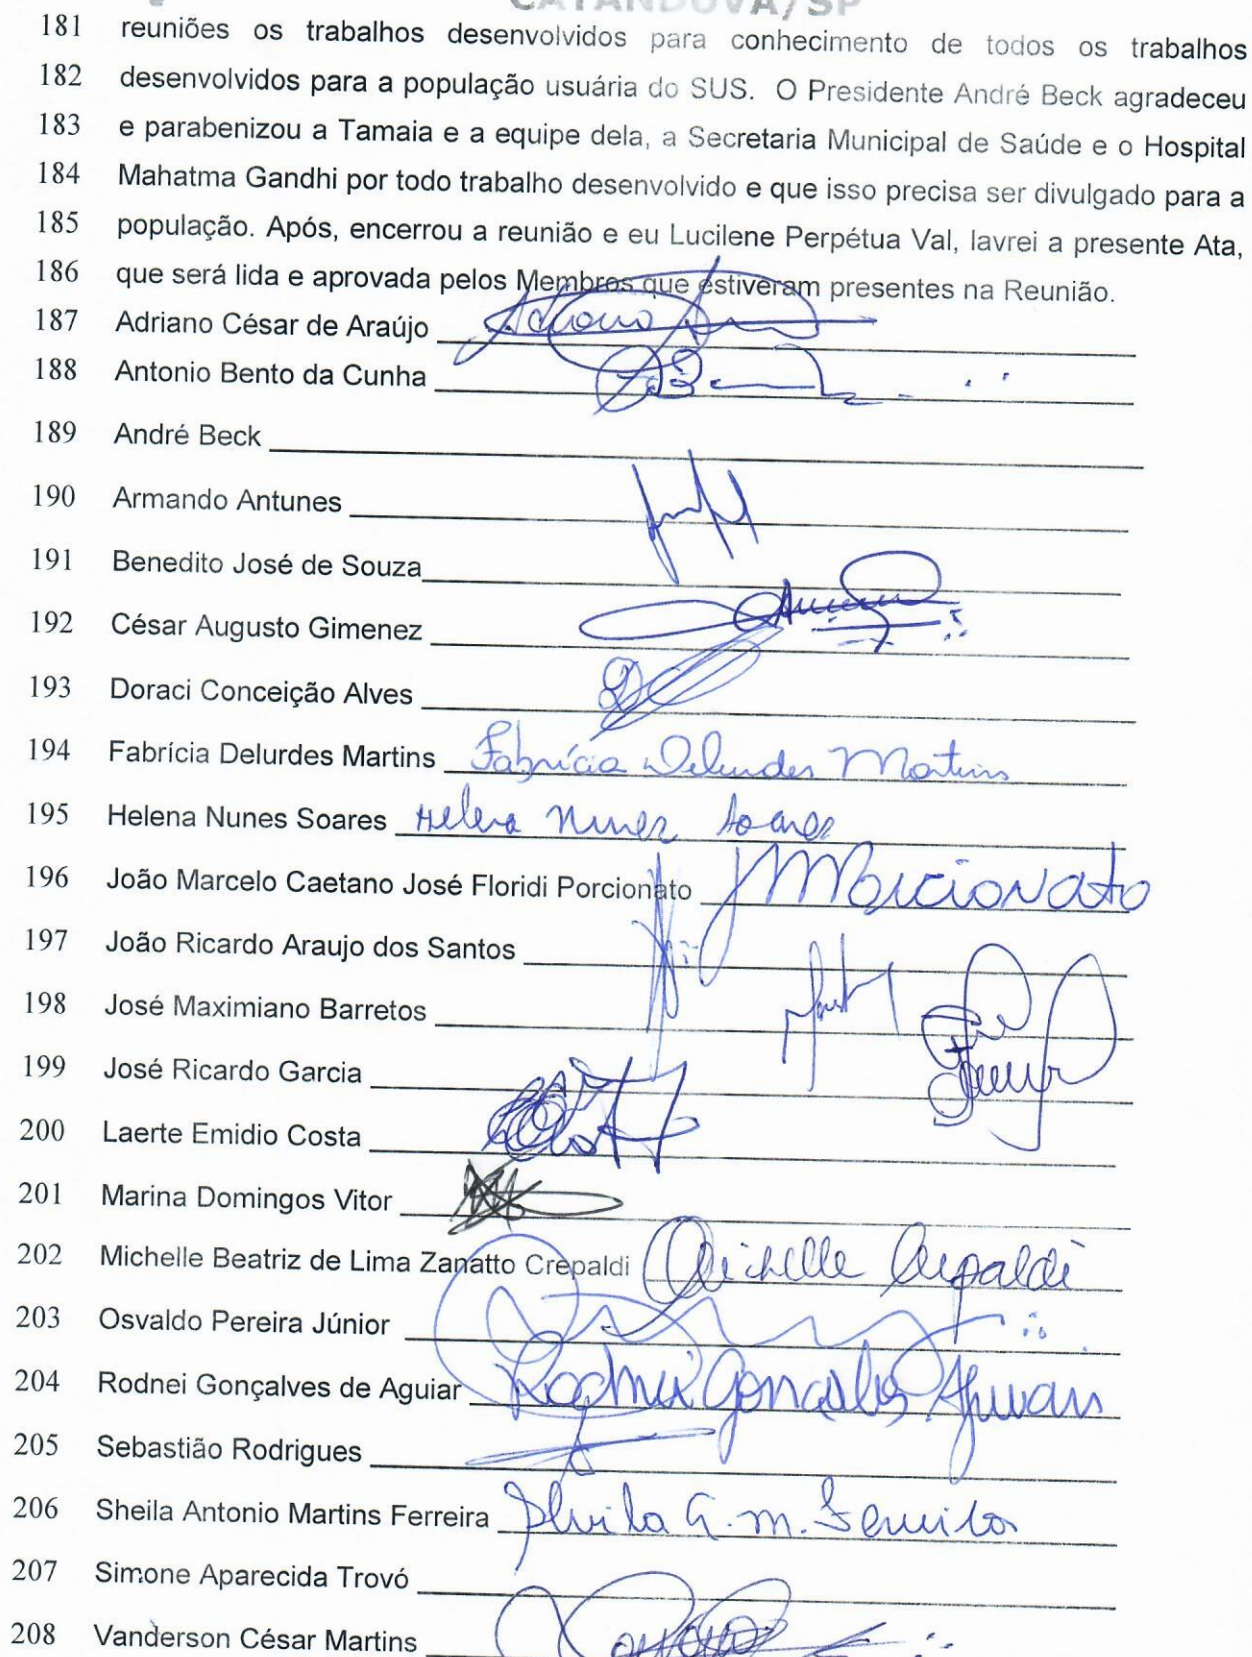 CATANDUVA/SP
181 reuniões os trabalhos desenvolvidos para conhecimento de todos os trabalhos
182 desenvolvidos para a população usuária do SUS. O Presidente André Beck agradeceu
183 e parabenizou a Tamaia e a equipe dela, a Secretaria Municipal de Saúde e o Hospital
184 Mahatma Gandhi por todo trabalho desenvolvido e que isso precisa ser divulgado para a
185 população. Após, encerrou a reunião e eu Lucilene Perpétua Val, lavrei a presente Ata,
186 que será lida e aprovada pelos Membros que estiveram presentes na Reunião.
187 Adriano César de Araújo Adriano
188 Antonio Bento da Cunha
189 André Beck
190 Armando Antunes
191 Benedito José de Souza
192 César Augusto Gimenez
193 Doraci Conceição Alves
194 Fabrícia Delurdes Martins Fabrícia Delurdes Martins
195 Helena Nunes Soares Helena Nunes Soares
196 João Marcelo Caetano José Floridi Porcionato JMPorcionato
197 João Ricardo Araujo dos Santos
198 José Maximiano Barretos
199 José Ricardo Garcia
200 Laerte Emidio Costa
201 Marina Domingos Vitor
202 Michelle Beatriz de Lima Zanatto Crepaldi Michelle Crepaldi
203 Osvaldo Pereira Júnior
204 Rodnei Gonçalves de Aguiar Rodnei Gonçalves Aguiar
205 Sebastião Rodrigues
206 Sheila Antonio Martins Ferreira Sheila A. M. Ferreira
207 Simone Aparecida Trovó
208 Vanderson César Martins